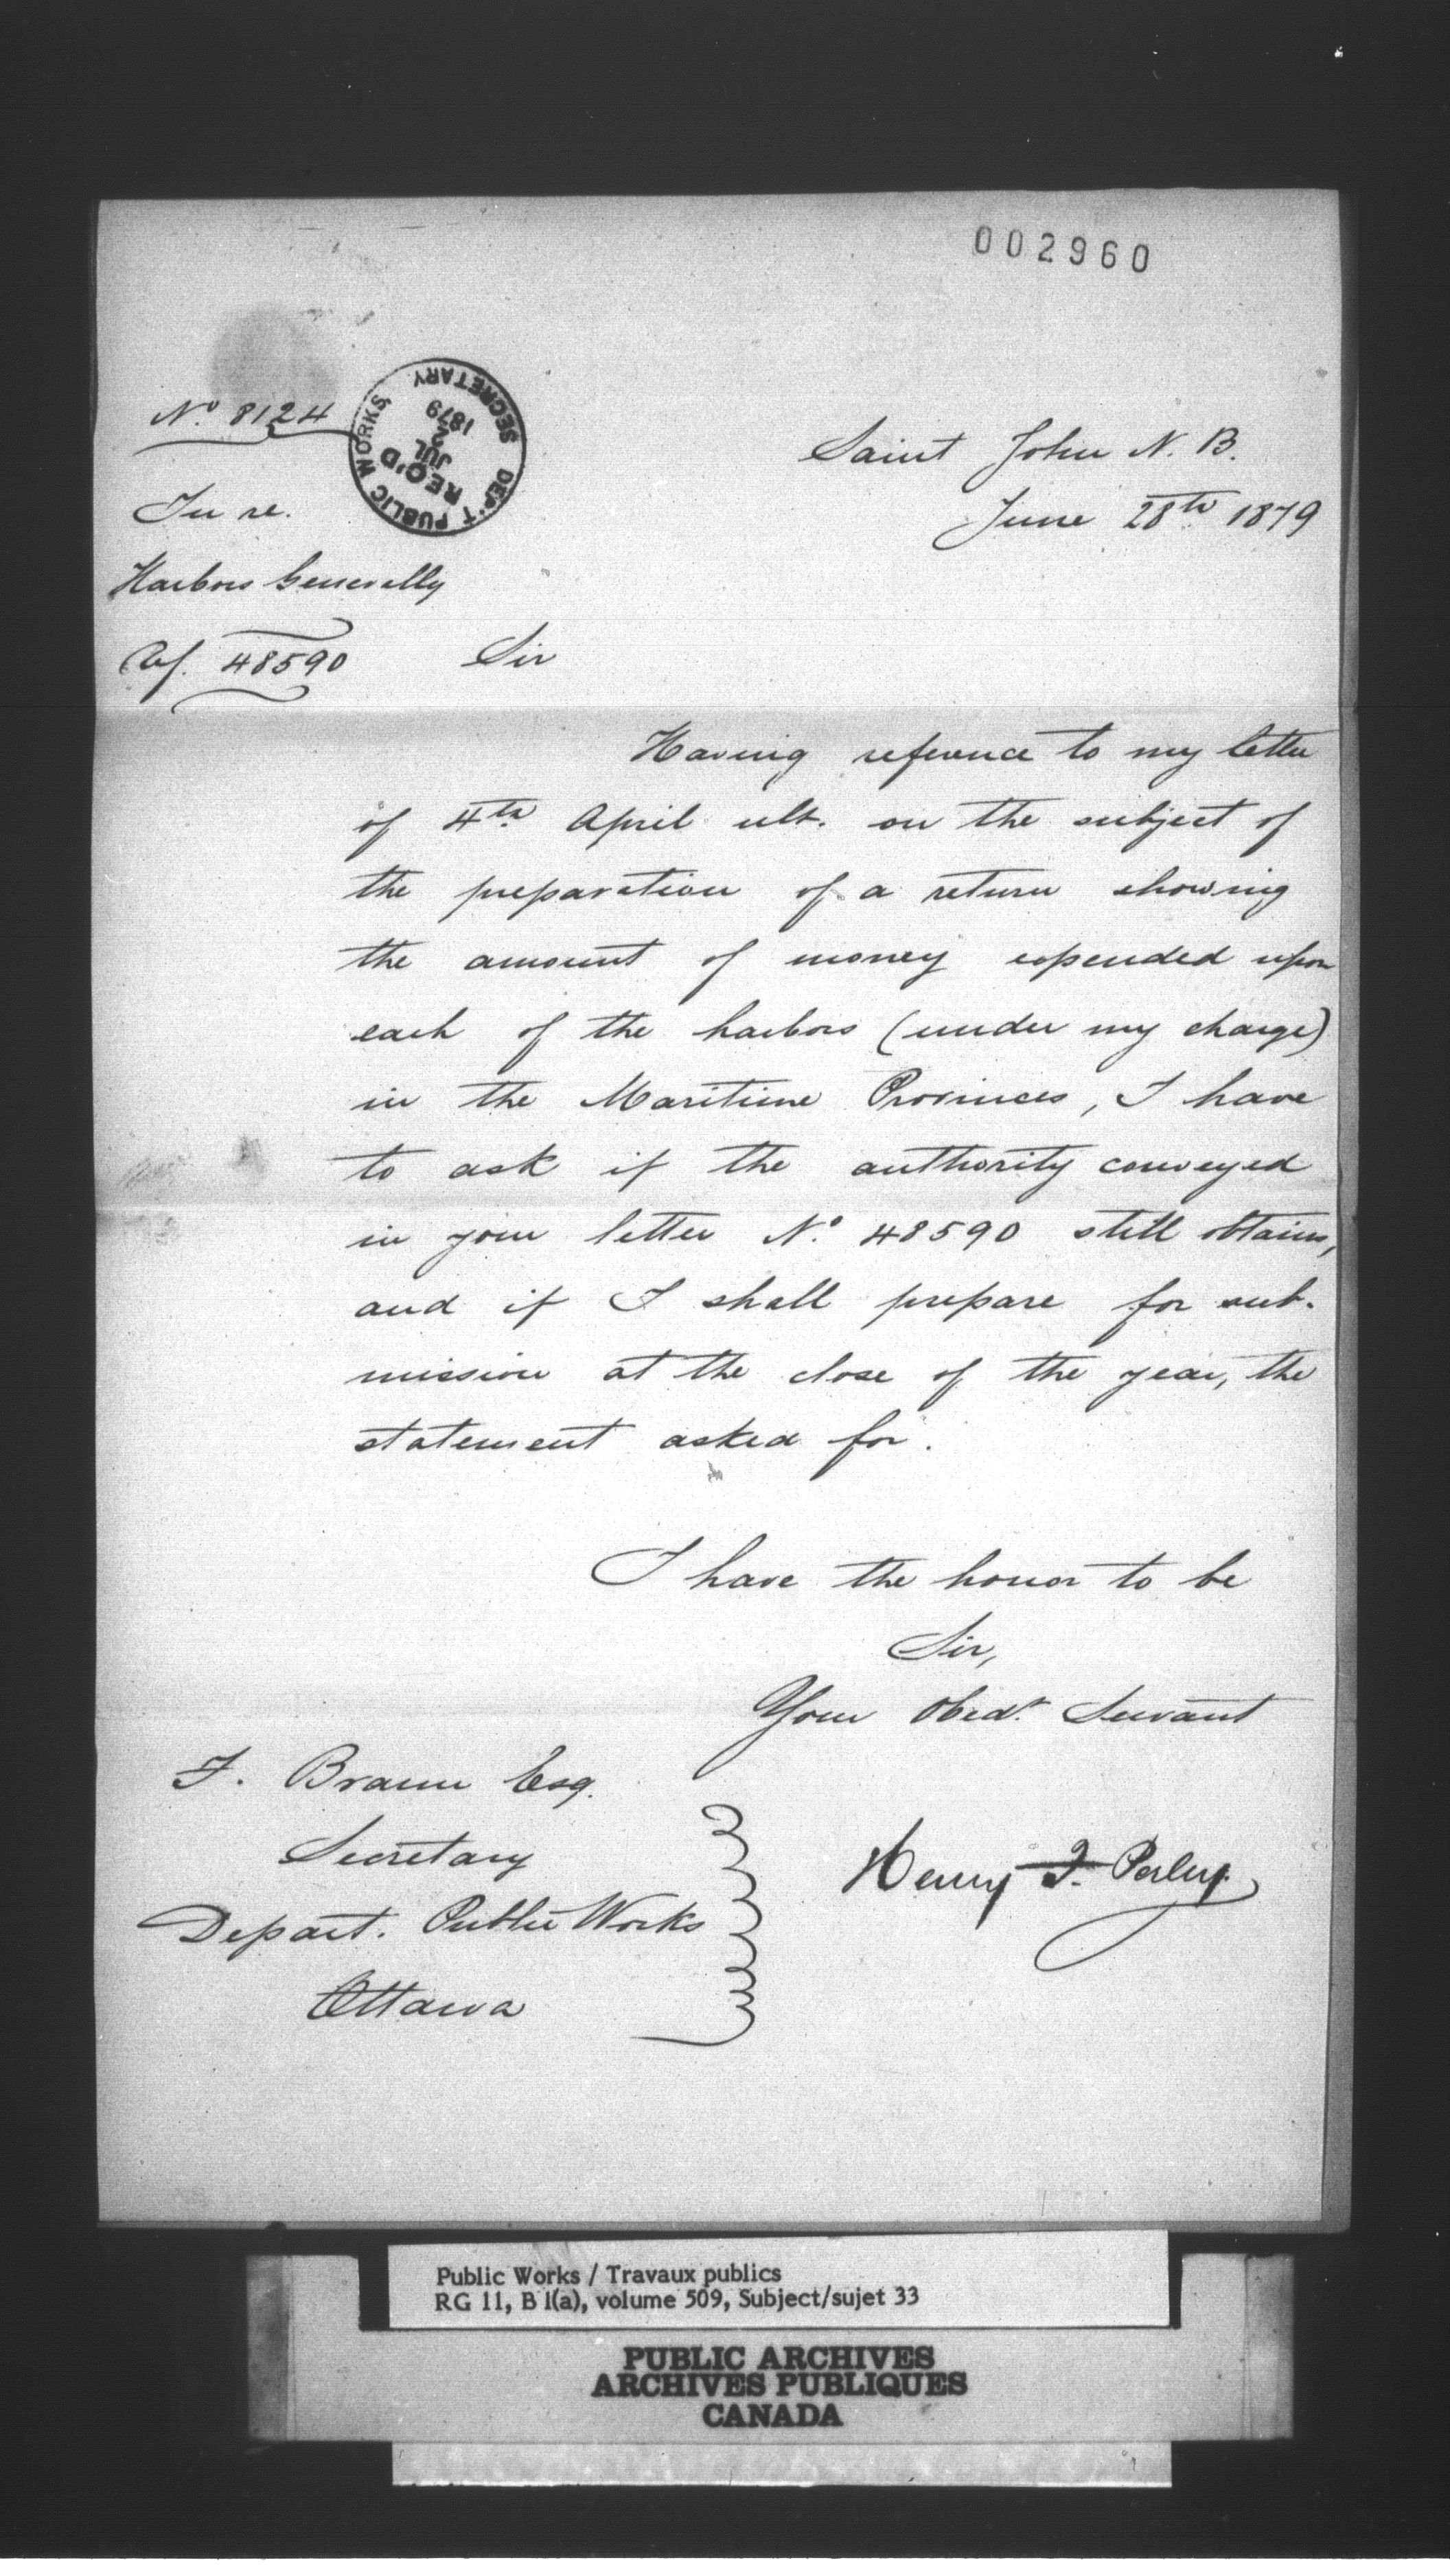 002960
No. 8124
DEP'T PUBLIC WORKS
REC'D
JUL
2
1879
SECRETARY
Saint John N. B.
June 28th 1879
In re.
Harbors Generally
Ref. 48590
Sir
Having reference to my letter
of 4th April ult. on the subject of
the preparation of a return showing
the amount of money expended upon
each of the harbors (under my charge)
in the Maritime Provinces, I have
to ask if the authority conveyed
in your letter No. 48590 still obtains,
and if I shall prepare for sub-
mission at the close of the year, the
statement asked for.
I have the honor to be
Sir,
Your Obedt. Servant
Henry F. Perley
F. Braun Esq.
Secretary
Depart. Public Works
Ottawa
Public Works / Travaux publics
RG 11, B 1(a), volume 509, Subject/sujet 33
PUBLIC ARCHIVES
ARCHIVES PUBLIQUES
CANADA